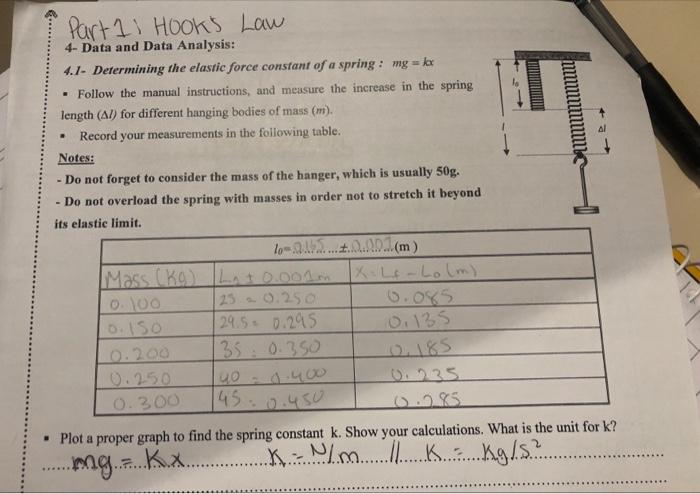 Part 1: Hook's Law
4- Data and Data Analysis:
4.1- Determining the elastic force constant of a spring : mg = kx
▪ Follow the manual instructions, and measure the increase in the spring
length (Δl) for different hanging bodies of mass (m).
▪ Record your measurements in the following table.
Notes:
- Do not forget to consider the mass of the hanger, which is usually 50g.
- Do not overload the spring with masses in order not to stretch it beyond
its elastic limit.
l₀
l
Δl
l₀= 0.165 ... ± 0.001 (m)
Mass (Kg) L₁ ± 0.001m X = Lf - L0 (m)
0.100 25 = 0.250 0.085
0.150 29.5 = 0.295 0.135
0.200 35 = 0.350 0.185
0.250 40 = 0.400 0.235
0.300 45 = 0.450 0.285
▪ Plot a proper graph to find the spring constant k. Show your calculations. What is the unit for k?
mg = Kx K = N/m // K = Kg/s²